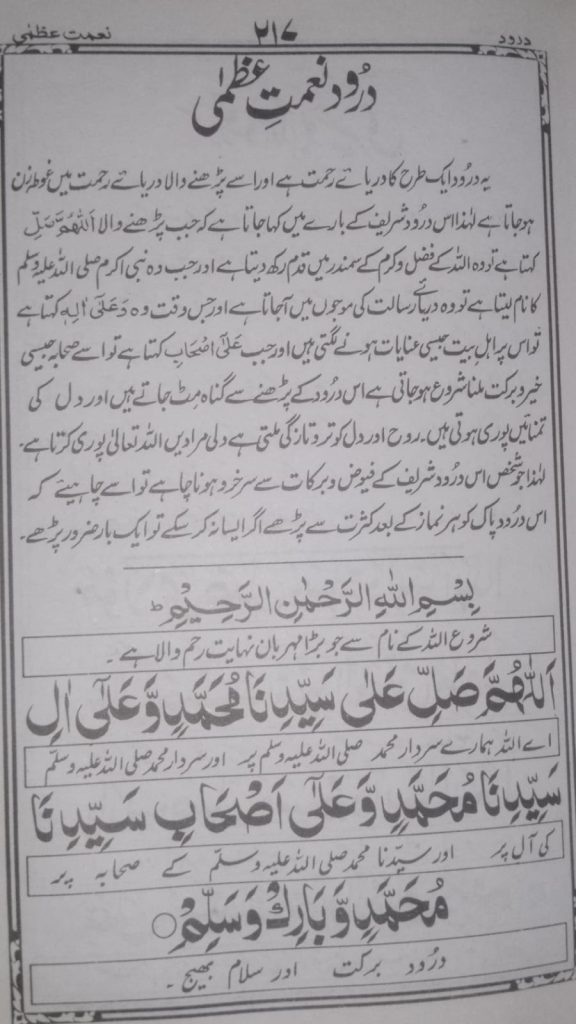 درود ۲۱۷ نعمت عظمٰی
درُود نعمتِ عظمٰی
یہ درُود ایک طرح کا دریائے رحمت ہے اور اسے پڑھنے والا دریائے رحمت میں غوطہ زن
ہو جاتا ہے لہٰذا اس درُود شریف کے بارے میں کہا جاتا ہے کہ جب پڑھنے والا اَللّٰھُمَّ صَلِّ
کہتا ہے تو وہ اللہ کے فضل و کرم کے سمندر میں قدم رکھ دیتا ہے اور جب وہ نبی اکرم صلی اللہ علیہ وسلم
کا نام لیتا ہے تو وہ دریائے رسالت کی موجوں میں آجاتا ہے اور جس وقت وہ وَعَلٰی اٰلِہٖ کہتا ہے
تو اس پر اہلِ بیت جیسی عنایات ہونے لگتی ہیں اور جب عَلٰٓی اَصْحَابِ کہتا ہے تو اسے صحابہ جیسی
خیر و برکت ملنا شروع ہو جاتی ہے اس درُود کے پڑھنے سے گناہ مِٹ جاتے ہیں اور دل کی
تمنائیں پوری ہوتی ہیں۔ روح اور دل کو تر و تازگی ملتی ہے دلی مرادیں اللہ تعالیٰ پوری کرتا ہے۔
لہٰذا جو شخص اس درُود شریف کے فیوض و برکات سے سرخرو ہونا چاہے تو اسے چاہیئے کہ
اس درُود پاک کو ہر نماز کے بعد کثرت سے پڑھے اگر ایسا نہ کر سکے تو ایک بار ضرور پڑھے۔
بِسْمِ اللّٰہِ الرَّحْمٰنِ الرَّحِیْمِ ط
شروع اللہ کے نام سے جو بڑا مہربان نہایت رحم والا ہے۔
اَللّٰھُمَّ صَلِّ عَلٰی سَیِّدِنَا مُحَمَّدٍ وَّعَلٰٓی اٰلِ
اے اللہ ہمارے سردار محمد صلی اللہ علیہ وسلم پر اور سردار محمد صلی اللہ علیہ وسلم
سَیِّدِنَا مُحَمَّدٍ وَّعَلٰٓی اَصْحَابِ سَیِّدِنَا
کی آل پر اور سیّدنا محمد صلی اللہ علیہ وسلم کے صحابہ پر
مُحَمَّدٍ وَّبَارِكْ وَسَلِّمْ ○
درُود برکت اور سلام بھیج۔